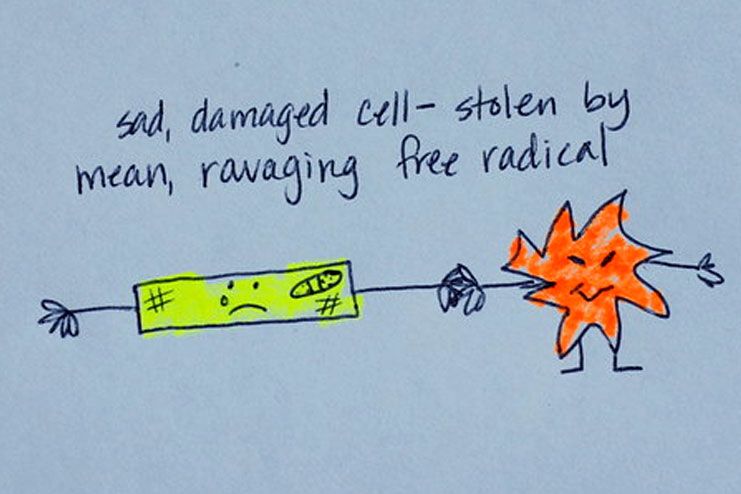 sad, damaged cell- stolen by
mean, ravaging free radical